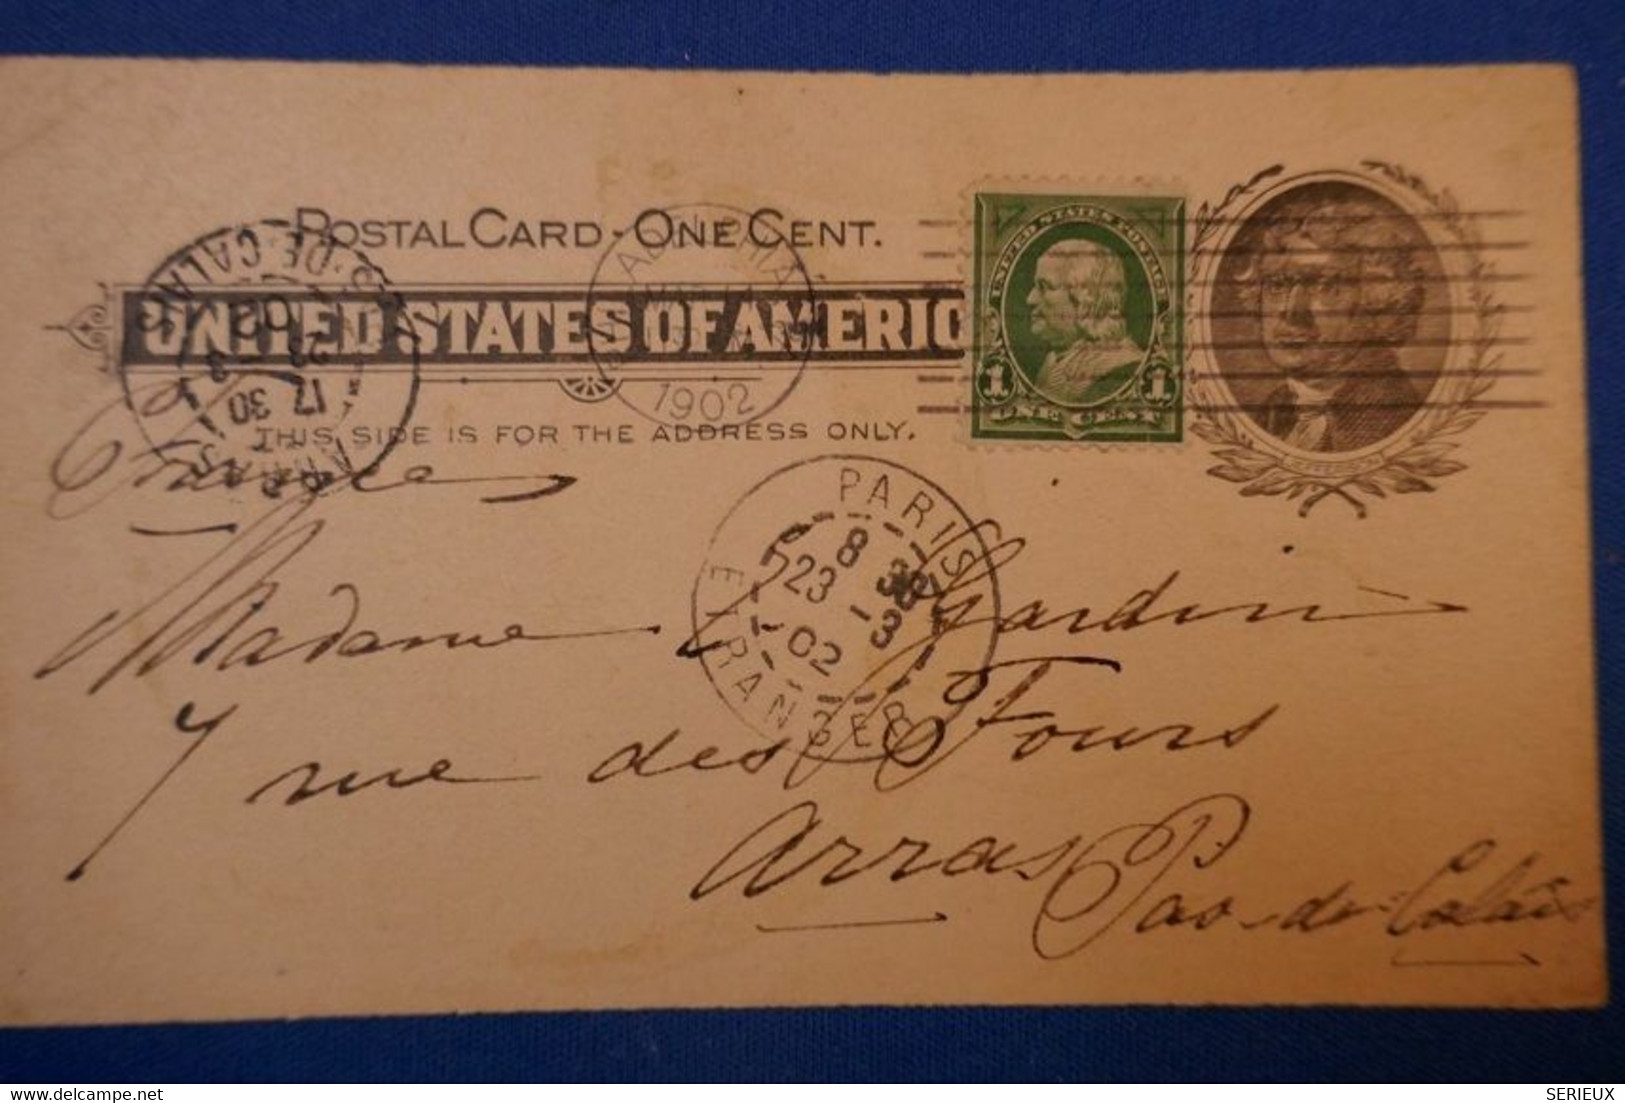 POSTAL CARD - ONE CENT.
UNITED STATES OF AMERIC
THIS SIDE IS FOR THE ADDRESS ONLY.
UNITED STATES POSTAGE
1 1
ONE CENT
JEFFERSON
1902
ARRAS
PAS-DE-CALAIS
17 30
23 3
02
PARIS
8 30
23 3
02
ETRANGER
France
Madame Jardin
7 rue des Fours
Arras Pas-de-Calais
SERIEUX